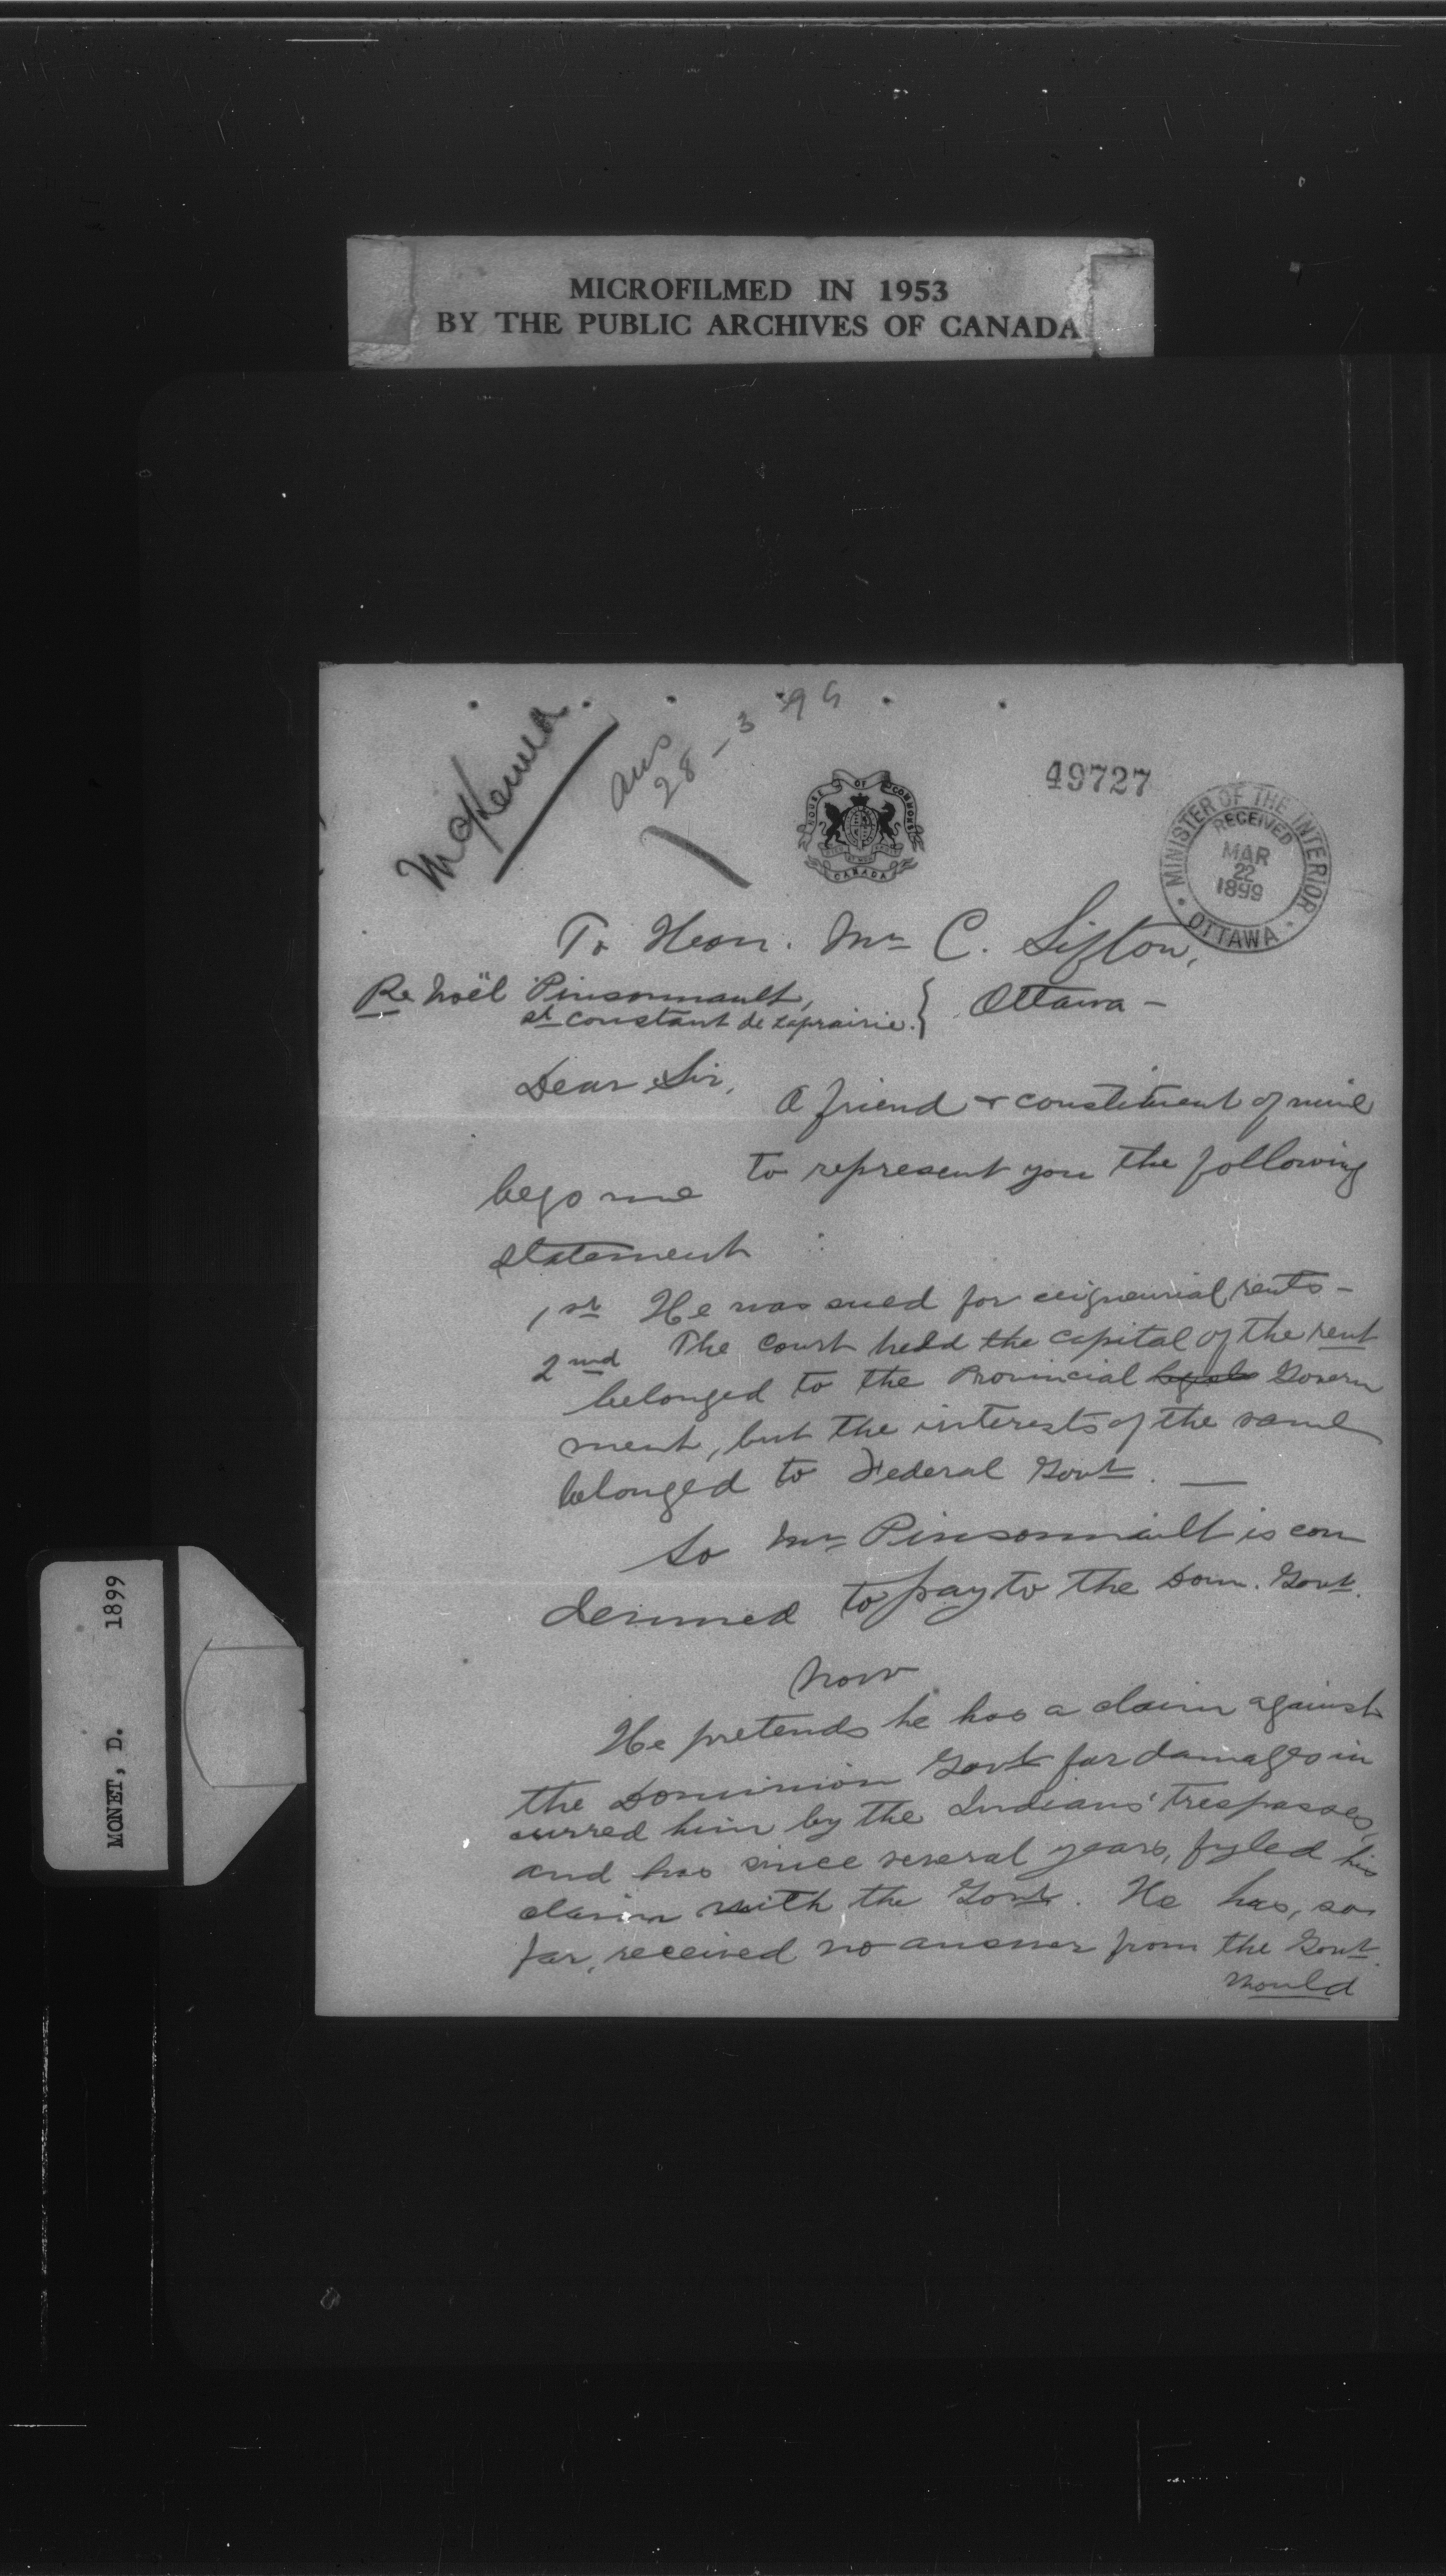 MICROFILMED IN 1953
BY THE PUBLIC ARCHIVES OF CANADA
McKenna
ans
28-3-99
HOUSE OF COMMONS
CANADA
49727
MINISTER OF THE INTERIOR
RECEIVED
MAR
22
1899
OTTAWA
To Hon. Mr C. Sifton,
Re Noël Pinsonnault,
St Constant de Laprairie. } Ottawa —
Dear Sir,
A friend & constituent of mine
begs me to represent you the following
statement :
1st He was sued for seigneurial rents —
2nd The Court held the capital of the rent
belonged to the Provincial Govern
ment, but the interests of the same
belonged to Federal Govt. —
So Mr Pinsonnault is con
demned to pay to the Dom. Govt.
Now
He pretends he has a claim against
the Dominion Govt for damages in
curred him by the Indians' trespasses,
and has since several years, fyled his
claim with the Govt. He has, so
far, received no answer from the Govt.
Would
MONET, D. 1899